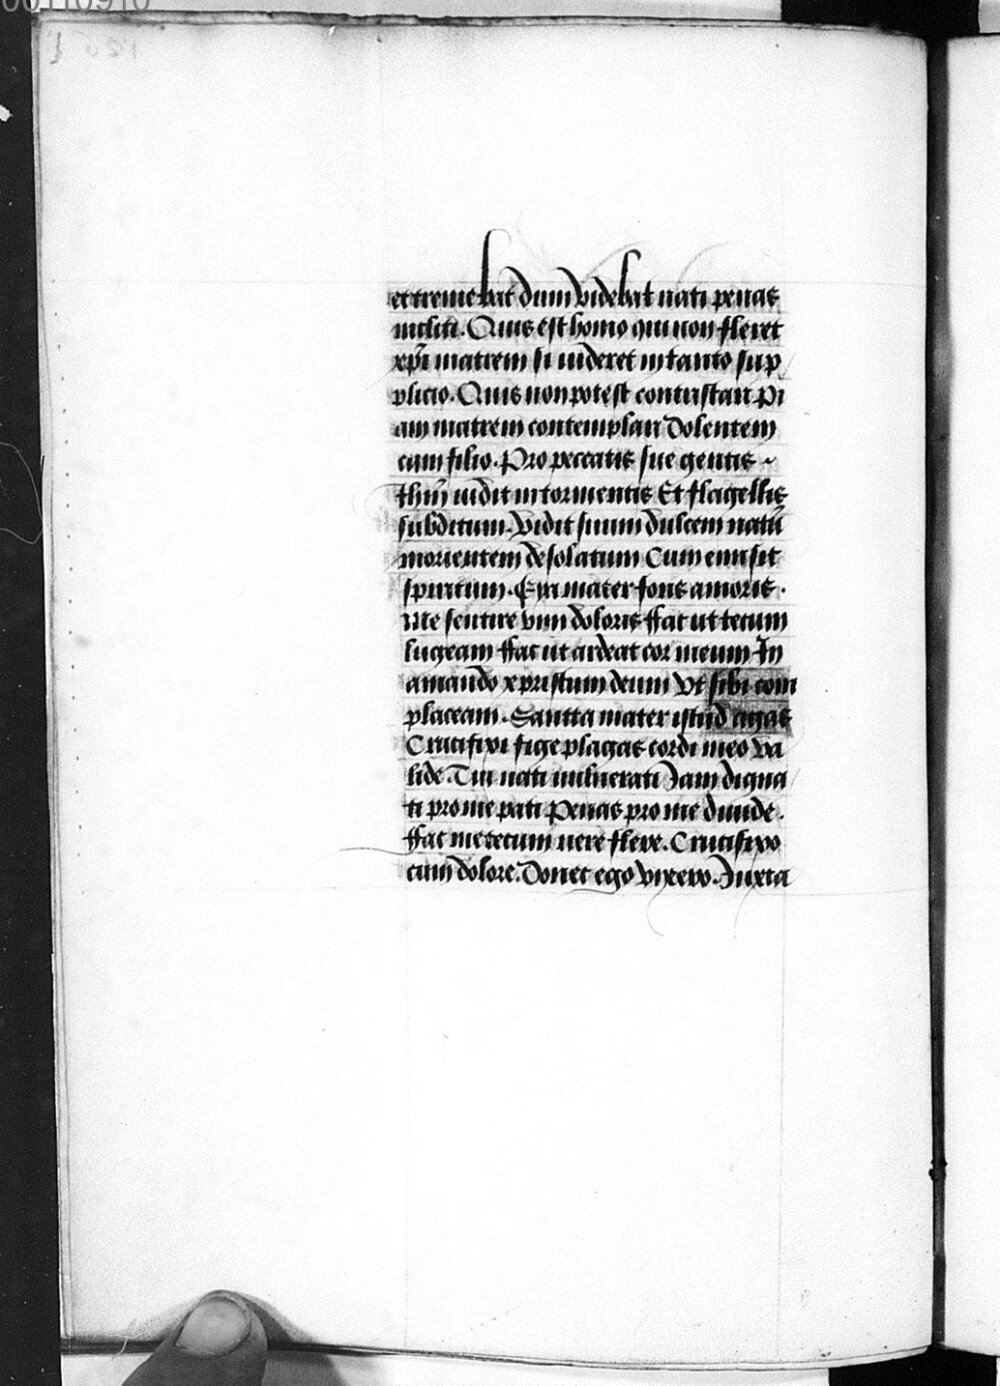 00110910
et tremebat dum videbat nati penas
incliti. Quis est homo qui non fleret
xp̄i matrem si videret in tanto sup
plicio. Quis non potest contristari Pi
am matrem contemplari dolentem
cum filio. Pro peccatis sue gentis ~
Ihm̄ vidit in tormentis Et flagellis
subditum. Vidit suum dulcem natū
morientem desolatum Cum emisit
spiritum. Eya mater fons amoris.
Me sentire vim doloris ffac ut tecum
lugeam ffac ut ardeat cor meum In
amando xpristum deum Vt sibi com
placeam. Sancta mater istud agas
Crucifixi fige plagas cordi meo va
lide. Tui nati vulnerati Jam digna
ti pro me pati Penas pro me diuide.
ffac me tecum vere flere. Crucifixo
cum dolore. Donec ego vixero. Juxta